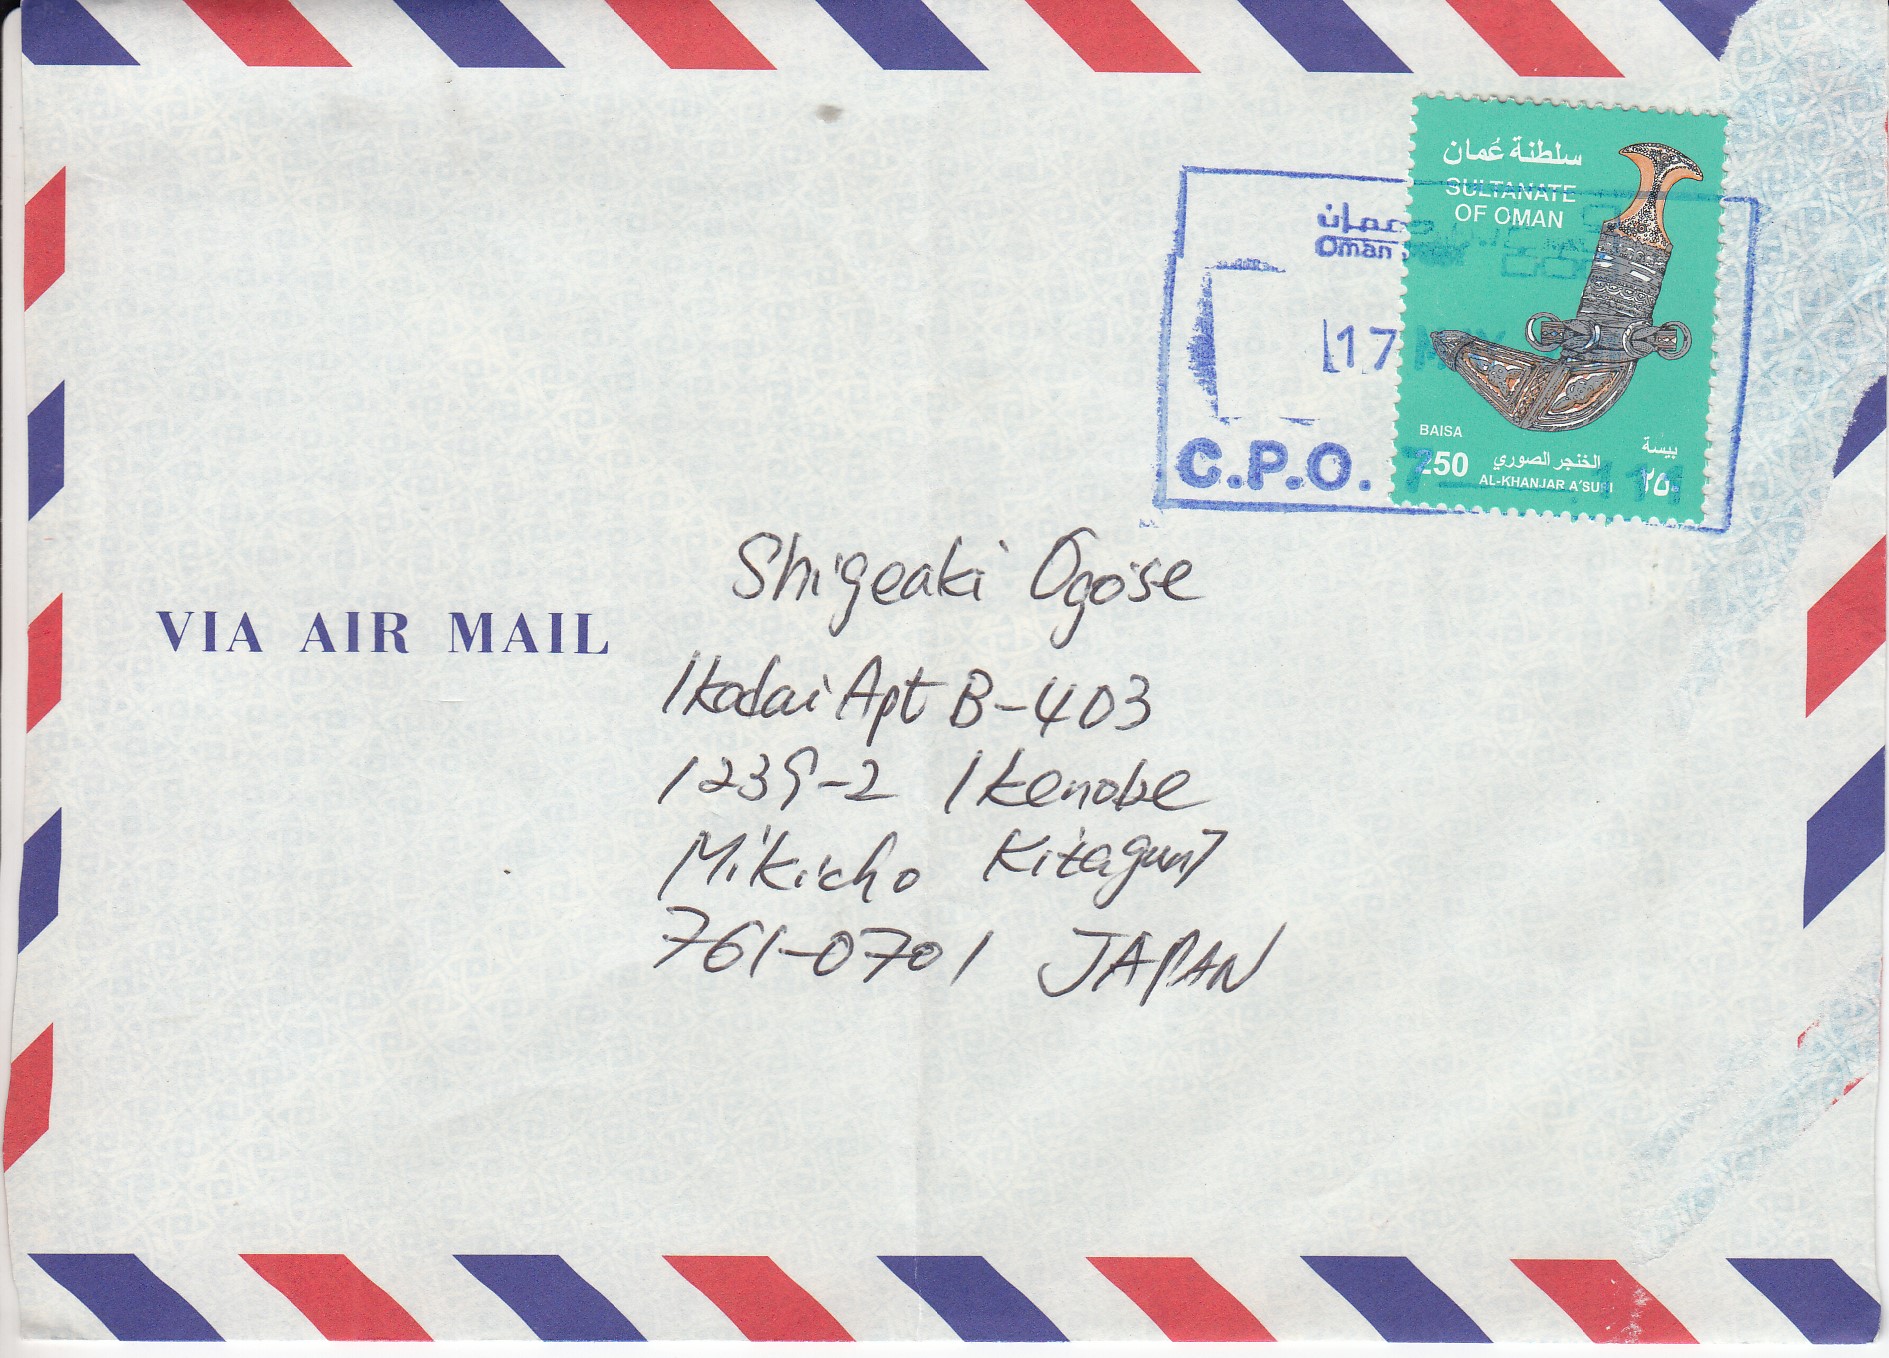 سلطنة عُمان
SULTANATE
OF OMAN
عمان
Oman
17 MAY
BAISA
بيسة
250
الخنجر الصوري
٢٥٠
AL-KHANJAR A'SURI
C.P.O. 7 111
Shigeaki Ogose
VIA AIR MAIL
Ikadai Apt B-403
1239-2 Ikenobe
Mikicho Kitagun
761-0701 JAPAN